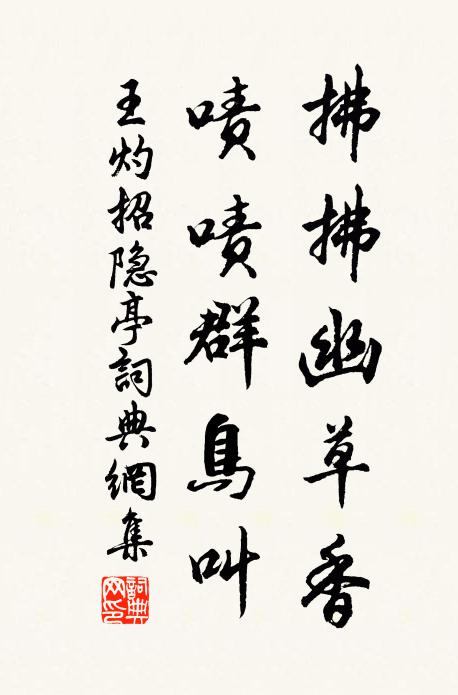 拂拂幽草香
嘖嘖群鳥叫
王灼招隐亭詞典網集
詞典网印